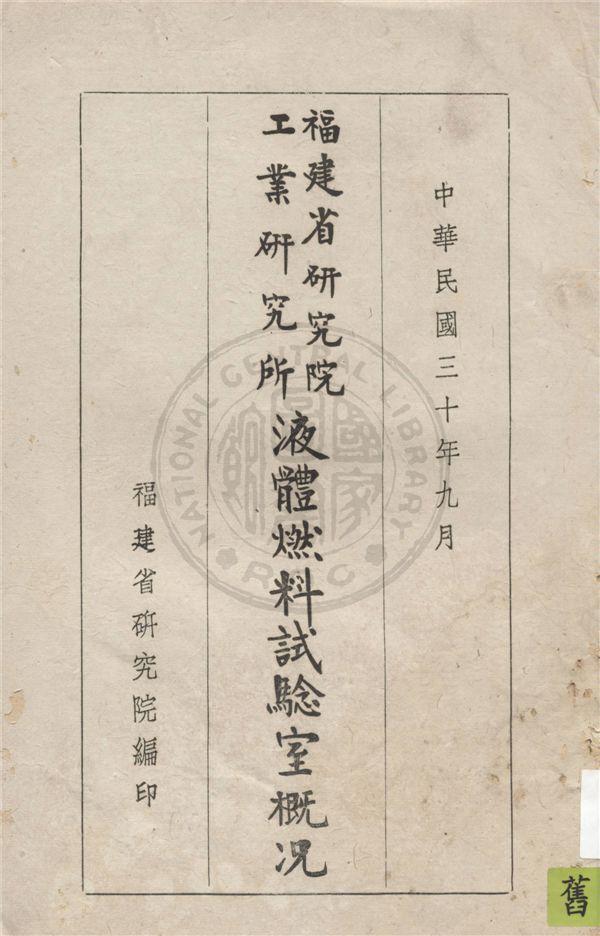 中華民國三十年九月
福建省研究院
工業研究所
液體燃料試驗室概况
福建省研究院編印
NATIONAL CENTRAL LIBRARY
R.O.C
國家圖書館
舊